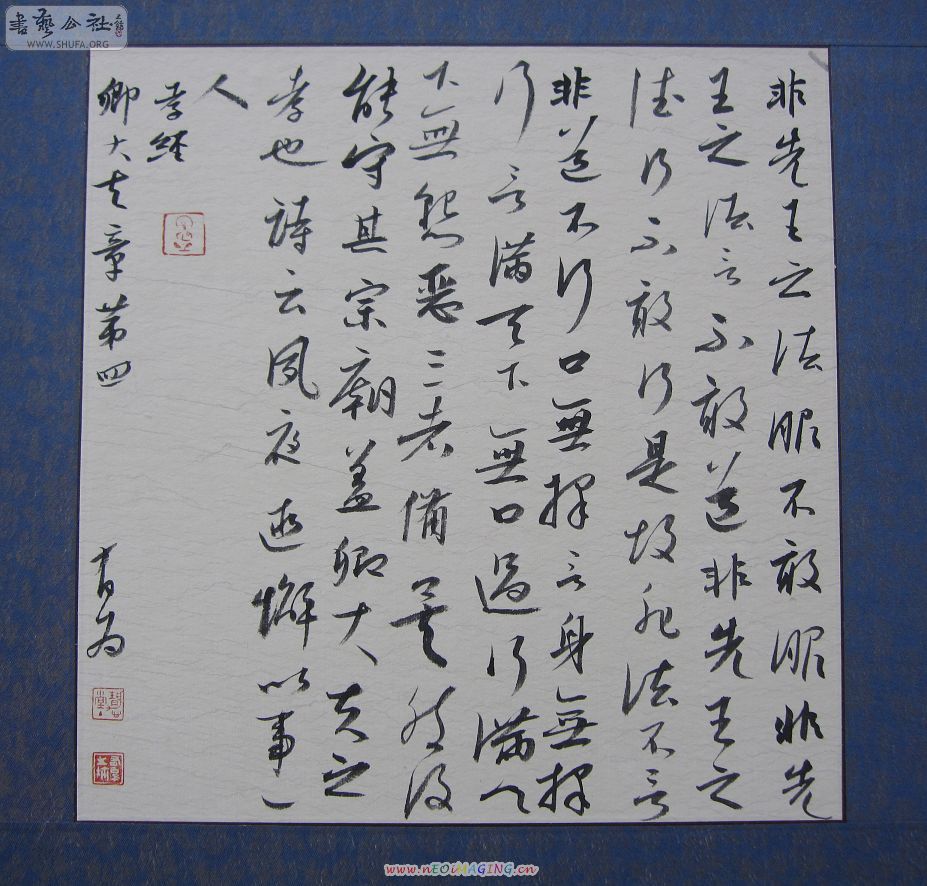 非先王之法服不敢服非先
王之法言不敢道非先王之
德行不敢行是故非法不言
非道不行口無擇言身無擇
行言滿天下無口過行滿天
下無怨惡三者備矣然後
能守其宗廟蓋卿大夫之
孝也詩云夙夜匪懈以事一
人
孝經
卿大夫章第四
書藝公社
WWW.SHUFA.ORG
www.nEOiMAGiNG.cn